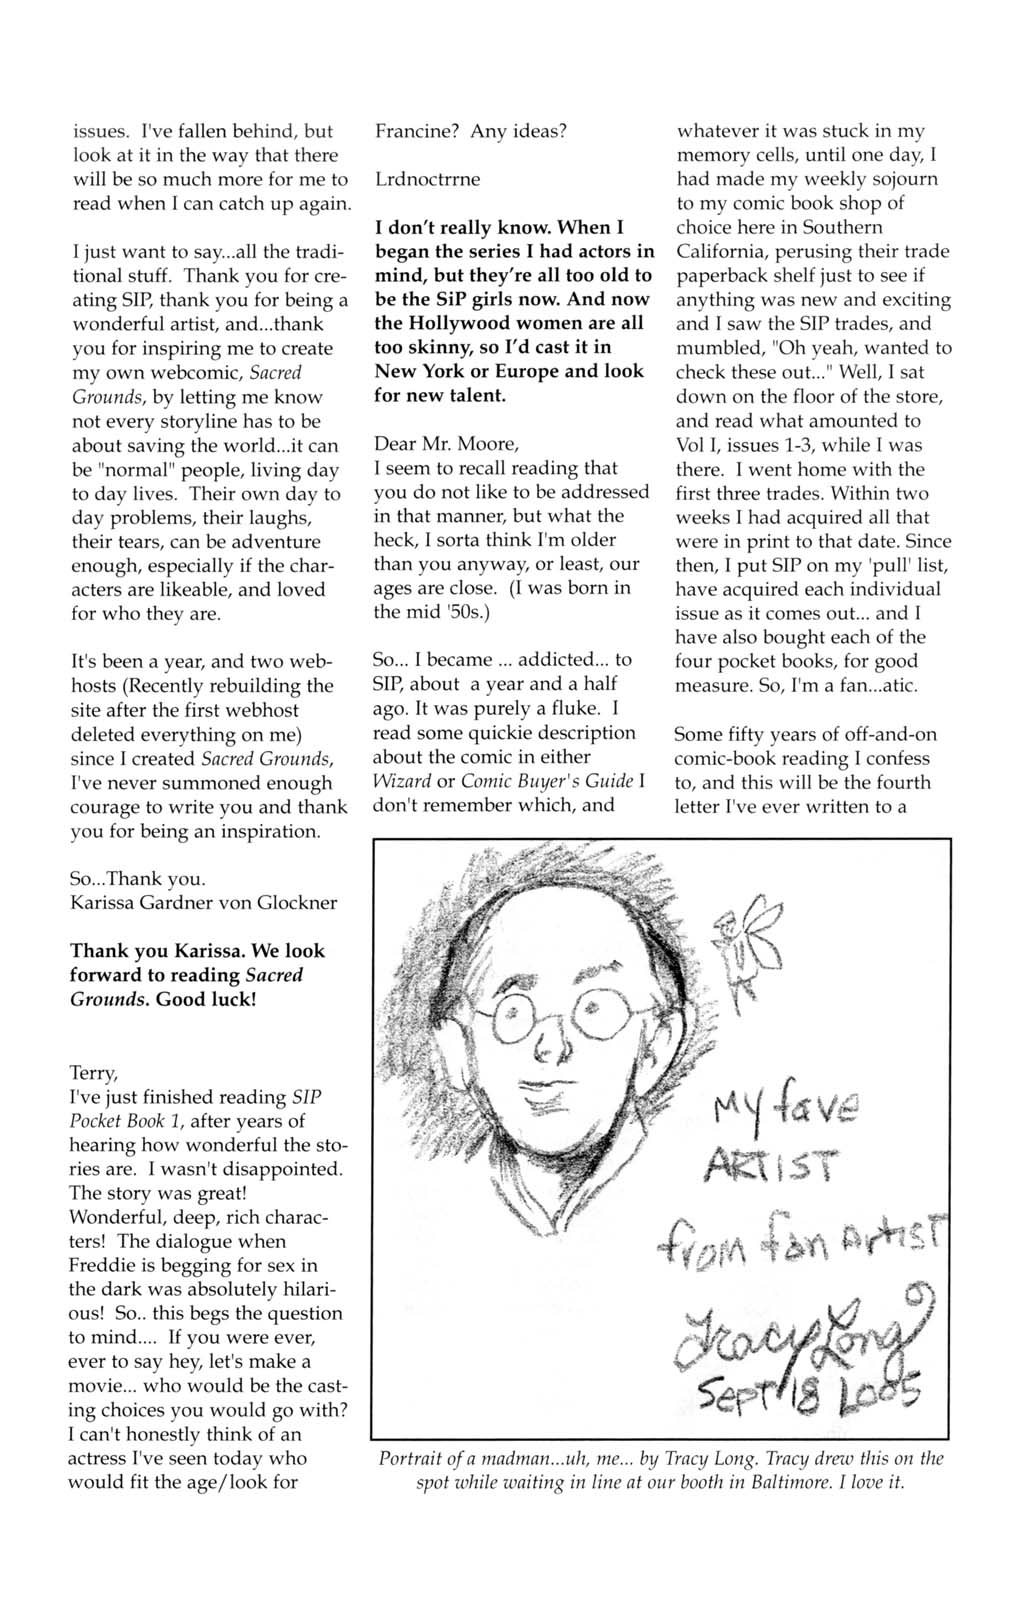 issues.  I've fallen behind, but
look at it in the way that there
will be so much more for me to
read when I can catch up again.
I just want to say...all the tradi-
tional stuff.  Thank you for cre-
ating SIP, thank you for being a
wonderful artist, and...thank
you for inspiring me to create
my own webcomic, Sacred
Grounds, by letting me know
not every storyline has to be
about saving the world...it can
be "normal" people, living day
to day lives.  Their own day to
day problems, their laughs,
their tears, can be adventure
enough, especially if the char-
acters are likeable, and loved
for who they are.
It's been a year, and two web-
hosts (Recently rebuilding the
site after the first webhost
deleted everything on me)
since I created Sacred Grounds,
I've never summoned enough
courage to write you and thank
you for being an inspiration.
So...Thank you.
Karissa Gardner von Glockner
Thank you Karissa. We look
forward to reading Sacred
Grounds. Good luck!
Terry,
I've just finished reading SIP
Pocket Book 1, after years of
hearing how wonderful the sto-
ries are.  I wasn't disappointed.
The story was great!
Wonderful, deep, rich charac-
ters!  The dialogue when
Freddie is begging for sex in
the dark was absolutely hilari-
ous!  So.. this begs the question
to mind....  If you were ever,
ever to say hey, let's make a
movie... who would be the cast-
ing choices you would go with?
I can't honestly think of an
actress I've seen today who
would fit the age/look for
Francine?  Any ideas?
Lrdnoctrrne
I don't really know. When I
began the series I had actors in
mind, but they're all too old to
be the SiP girls now. And now
the Hollywood women are all
too skinny, so I'd cast it in
New York or Europe and look
for new talent.
Dear Mr. Moore,
I seem to recall reading that
you do not like to be addressed
in that manner, but what the
heck, I sorta think I'm older
than you anyway, or least, our
ages are close.  (I was born in
the mid '50s.)
So... I became ... addicted... to
SIP, about  a year and a half
ago. It was purely a fluke.  I
read some quickie description
about the comic in either
Wizard or Comic Buyer's Guide I
don't remember which, and
whatever it was stuck in my
memory cells, until one day, I
had made my weekly sojourn
to my comic book shop of
choice here in Southern
California, perusing their trade
paperback shelf just to see if
anything was new and exciting
and I saw the SIP trades, and
mumbled, "Oh yeah, wanted to
check these out..." Well, I sat
down on the floor of the store,
and read what amounted to
Vol I, issues 1-3, while I was
there.  I went home with the
first three trades. Within two
weeks I had acquired all that
were in print to that date. Since
then, I put SIP on my 'pull' list,
have acquired each individual
issue as it comes out... and I
have also bought each of the
four pocket books, for good
measure. So, I'm a fan...atic.
Some fifty years of off-and-on
comic-book reading I confess
to, and this will be the fourth
letter I've ever written to a
My fave
ARTIST
from fan Artist
Tracy Long
Sept 18 2005
Portrait of a madman...uh, me... by Tracy Long. Tracy drew this on the
spot while waiting in line at our booth in Baltimore. I love it.